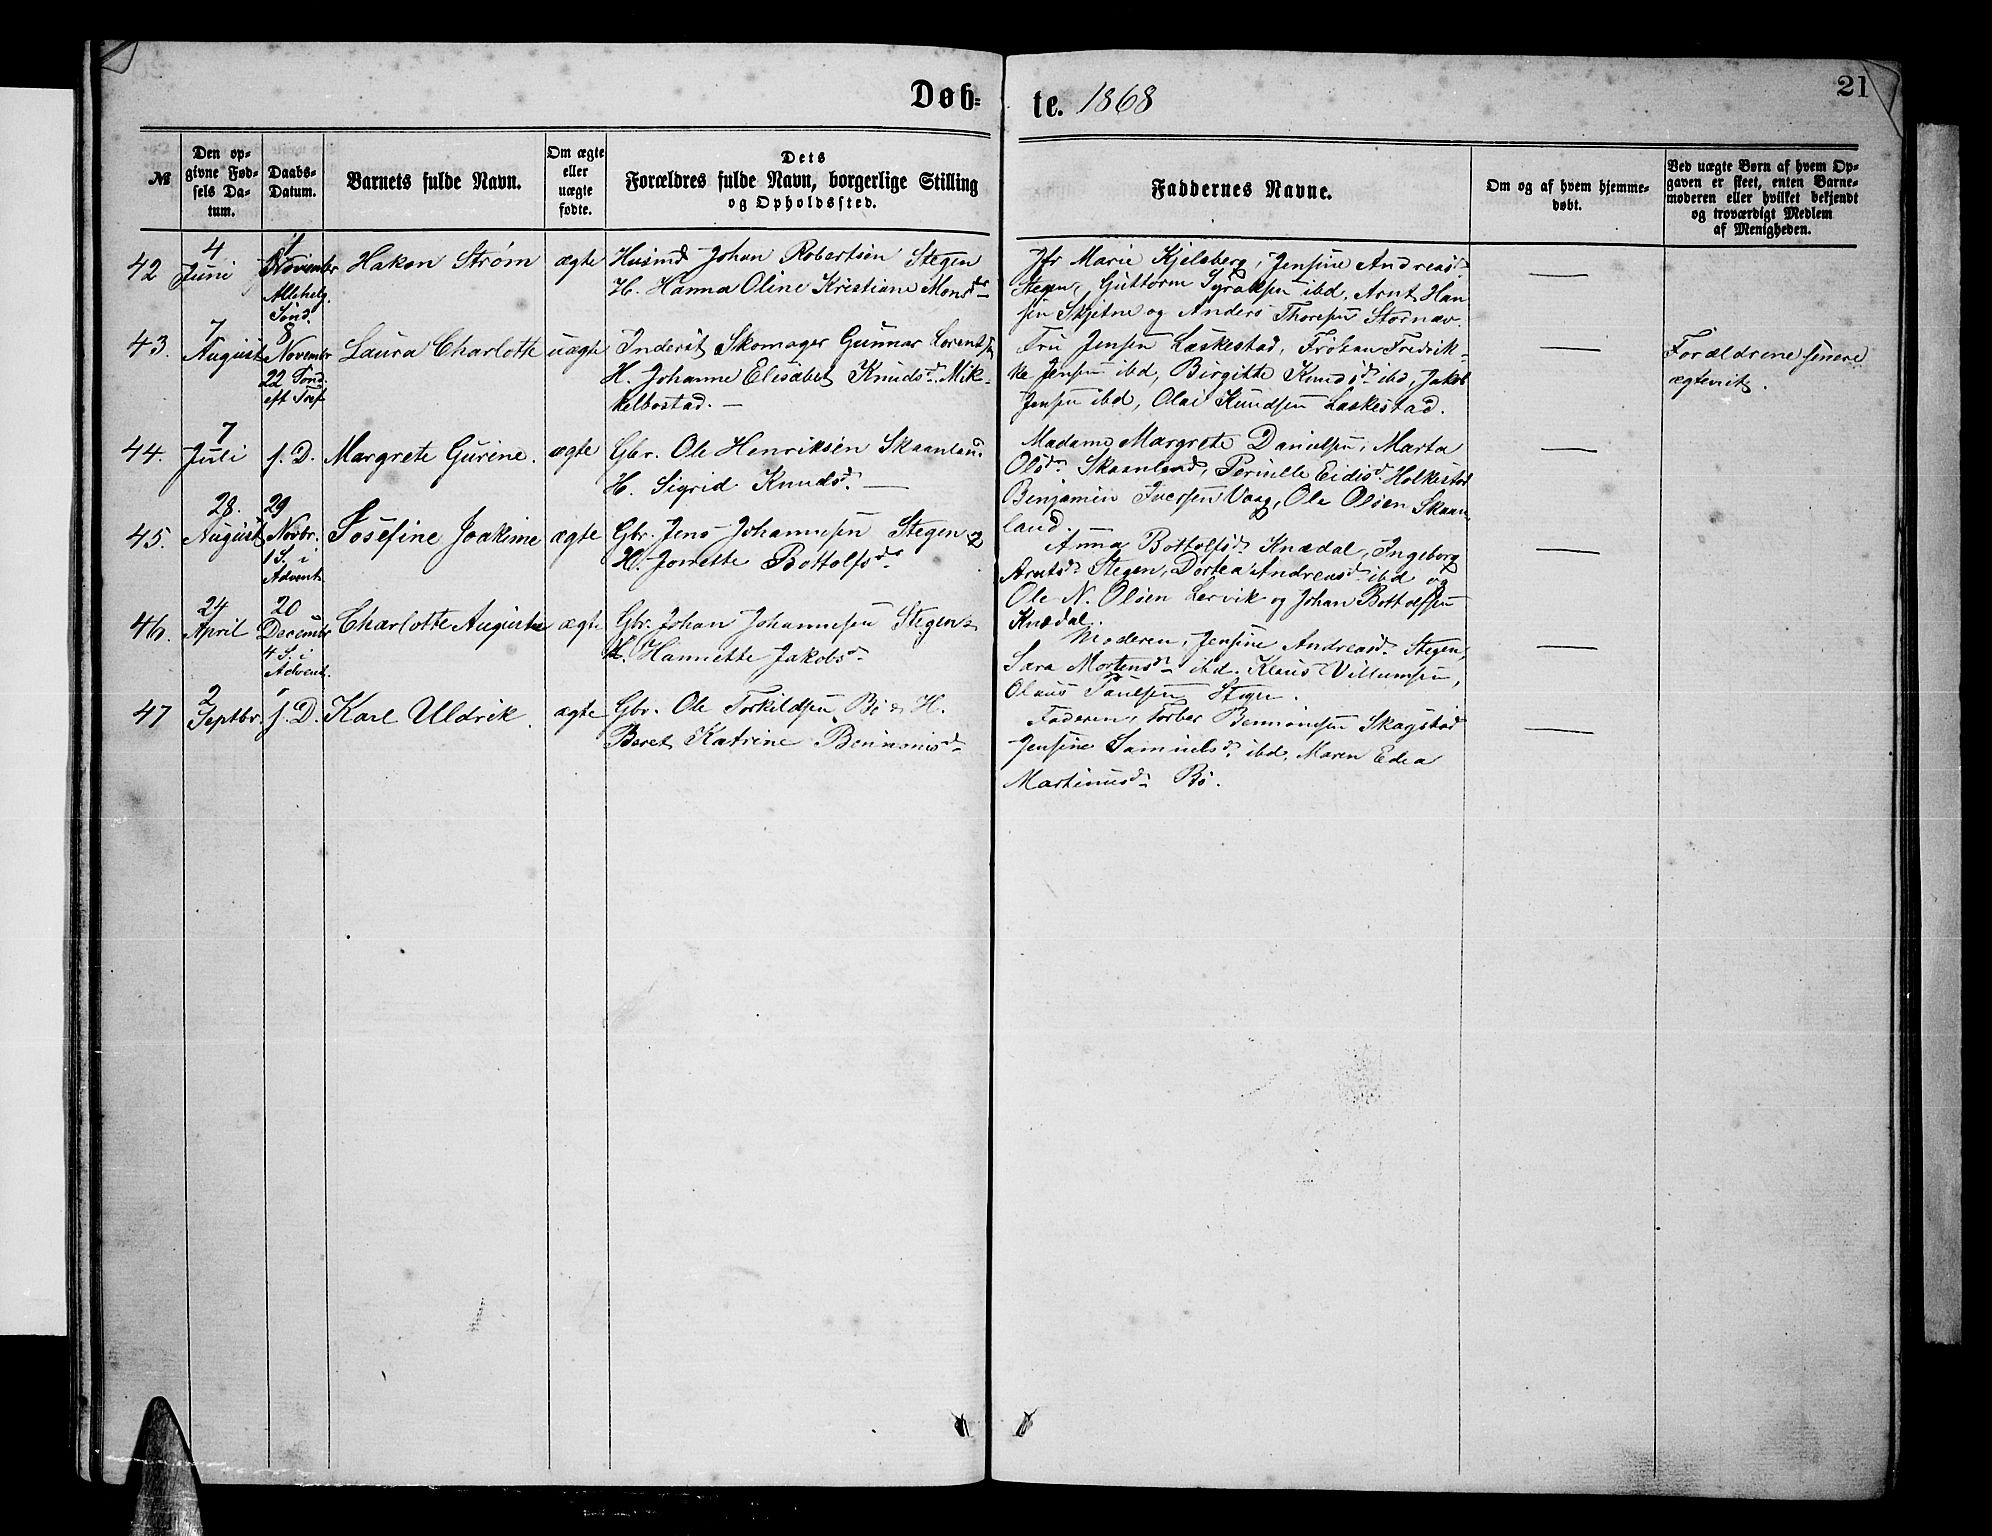 Døb-
te. 1868
21
№
Den op-
givne Fød-
sels Da-
tum.
Daabs-
Datum.
Barnets fulde Navn.
Om ægte
eller
uægte
fødte.
Dets
Forældres fulde Navn, borgerlige Stilling
og Opholdssted.
Faddernes Navne.
Om og af hvem hjemme-
døbt.
Ved uægte Børn af hvem Op-
gaven er skeet, enten Barne-
moderen eller hvilket bekjendt
og troværdigt Medlem
af Menigheden.
42
4
Juni
1
November
Allehelg.
Sønd.
Hakon Strøm
ægte
Husmd Johan Robertsen Stegen
H. Hanna Oline Kristiane Monsdr
Jfr Marie Kjelsberg, Jensine Andreasd.
Stegen, Guttorm ibd, Arnt Han
sen Skjetne og Anders Thoresen Stornæv.
43.
7
August
8
Novembr
22 Sønd.
eft Tref
Laura Charlotte
uægte
Inderst Skomager Gunnar Lorentsen
H. Johanne Elisabet Knudsd. Mik-
kelbostad. —
Fru Jensen Laskestad, Frøken Fredrik-
ke Jensen ibd, Birgitte Knudsd. ibd, Jakob
Jensen ibd, Olai Knudsen Laskestad.
Forældrene senere
ægteviet.
44.
7
Juli
s. D.
Margrete Gurine.
ægte
Gbr. Ole Henriksen Skaanland
H. Sigrid Knudsd. —
Madame Margrete Danielsen, Marta
Olsd. Skaanland, Pernille Eidisd. Holkestad
Benjamin Iversen Vaag, Ole Olsen Skaan-
land.
45.
28.
August
29
Novbr.
1 S. i
Advent
Josefine Joakime
ægte
Gbr. Jens Johannesen Stegen &
H. Jonette Bottolfsdr
Anna Bottolfsd. Knædal, Ingeborg
Arntsd. Stegen, Dortea Andreasd. ibd og
Ole N. Olsen Lervik og Johan Bottolfsen
Knædal.
46.
24
April
20
Decembr
4 S. i
Advent.
Charlotte Auguste
ægte
Gbr. Johan Johannesen Stegen &
H. Hannette Jakobsd.
Moderen, Jensine Andreasd. Stegen,
Sara Mortensd. ibd. Klaus Villumsen,
Olaus Paulsen Stegen.
47
2
Septbr.
s. D.
Karl Uldrik.
ægte
Gbr. Ole Torkildsen Bö & H.
Beret Katrine Benonisd.
Faderen, Torber Benonisen Skagstad
Jensine Samuelsd. ibd, Maren Edea
Martinusd. Bö.